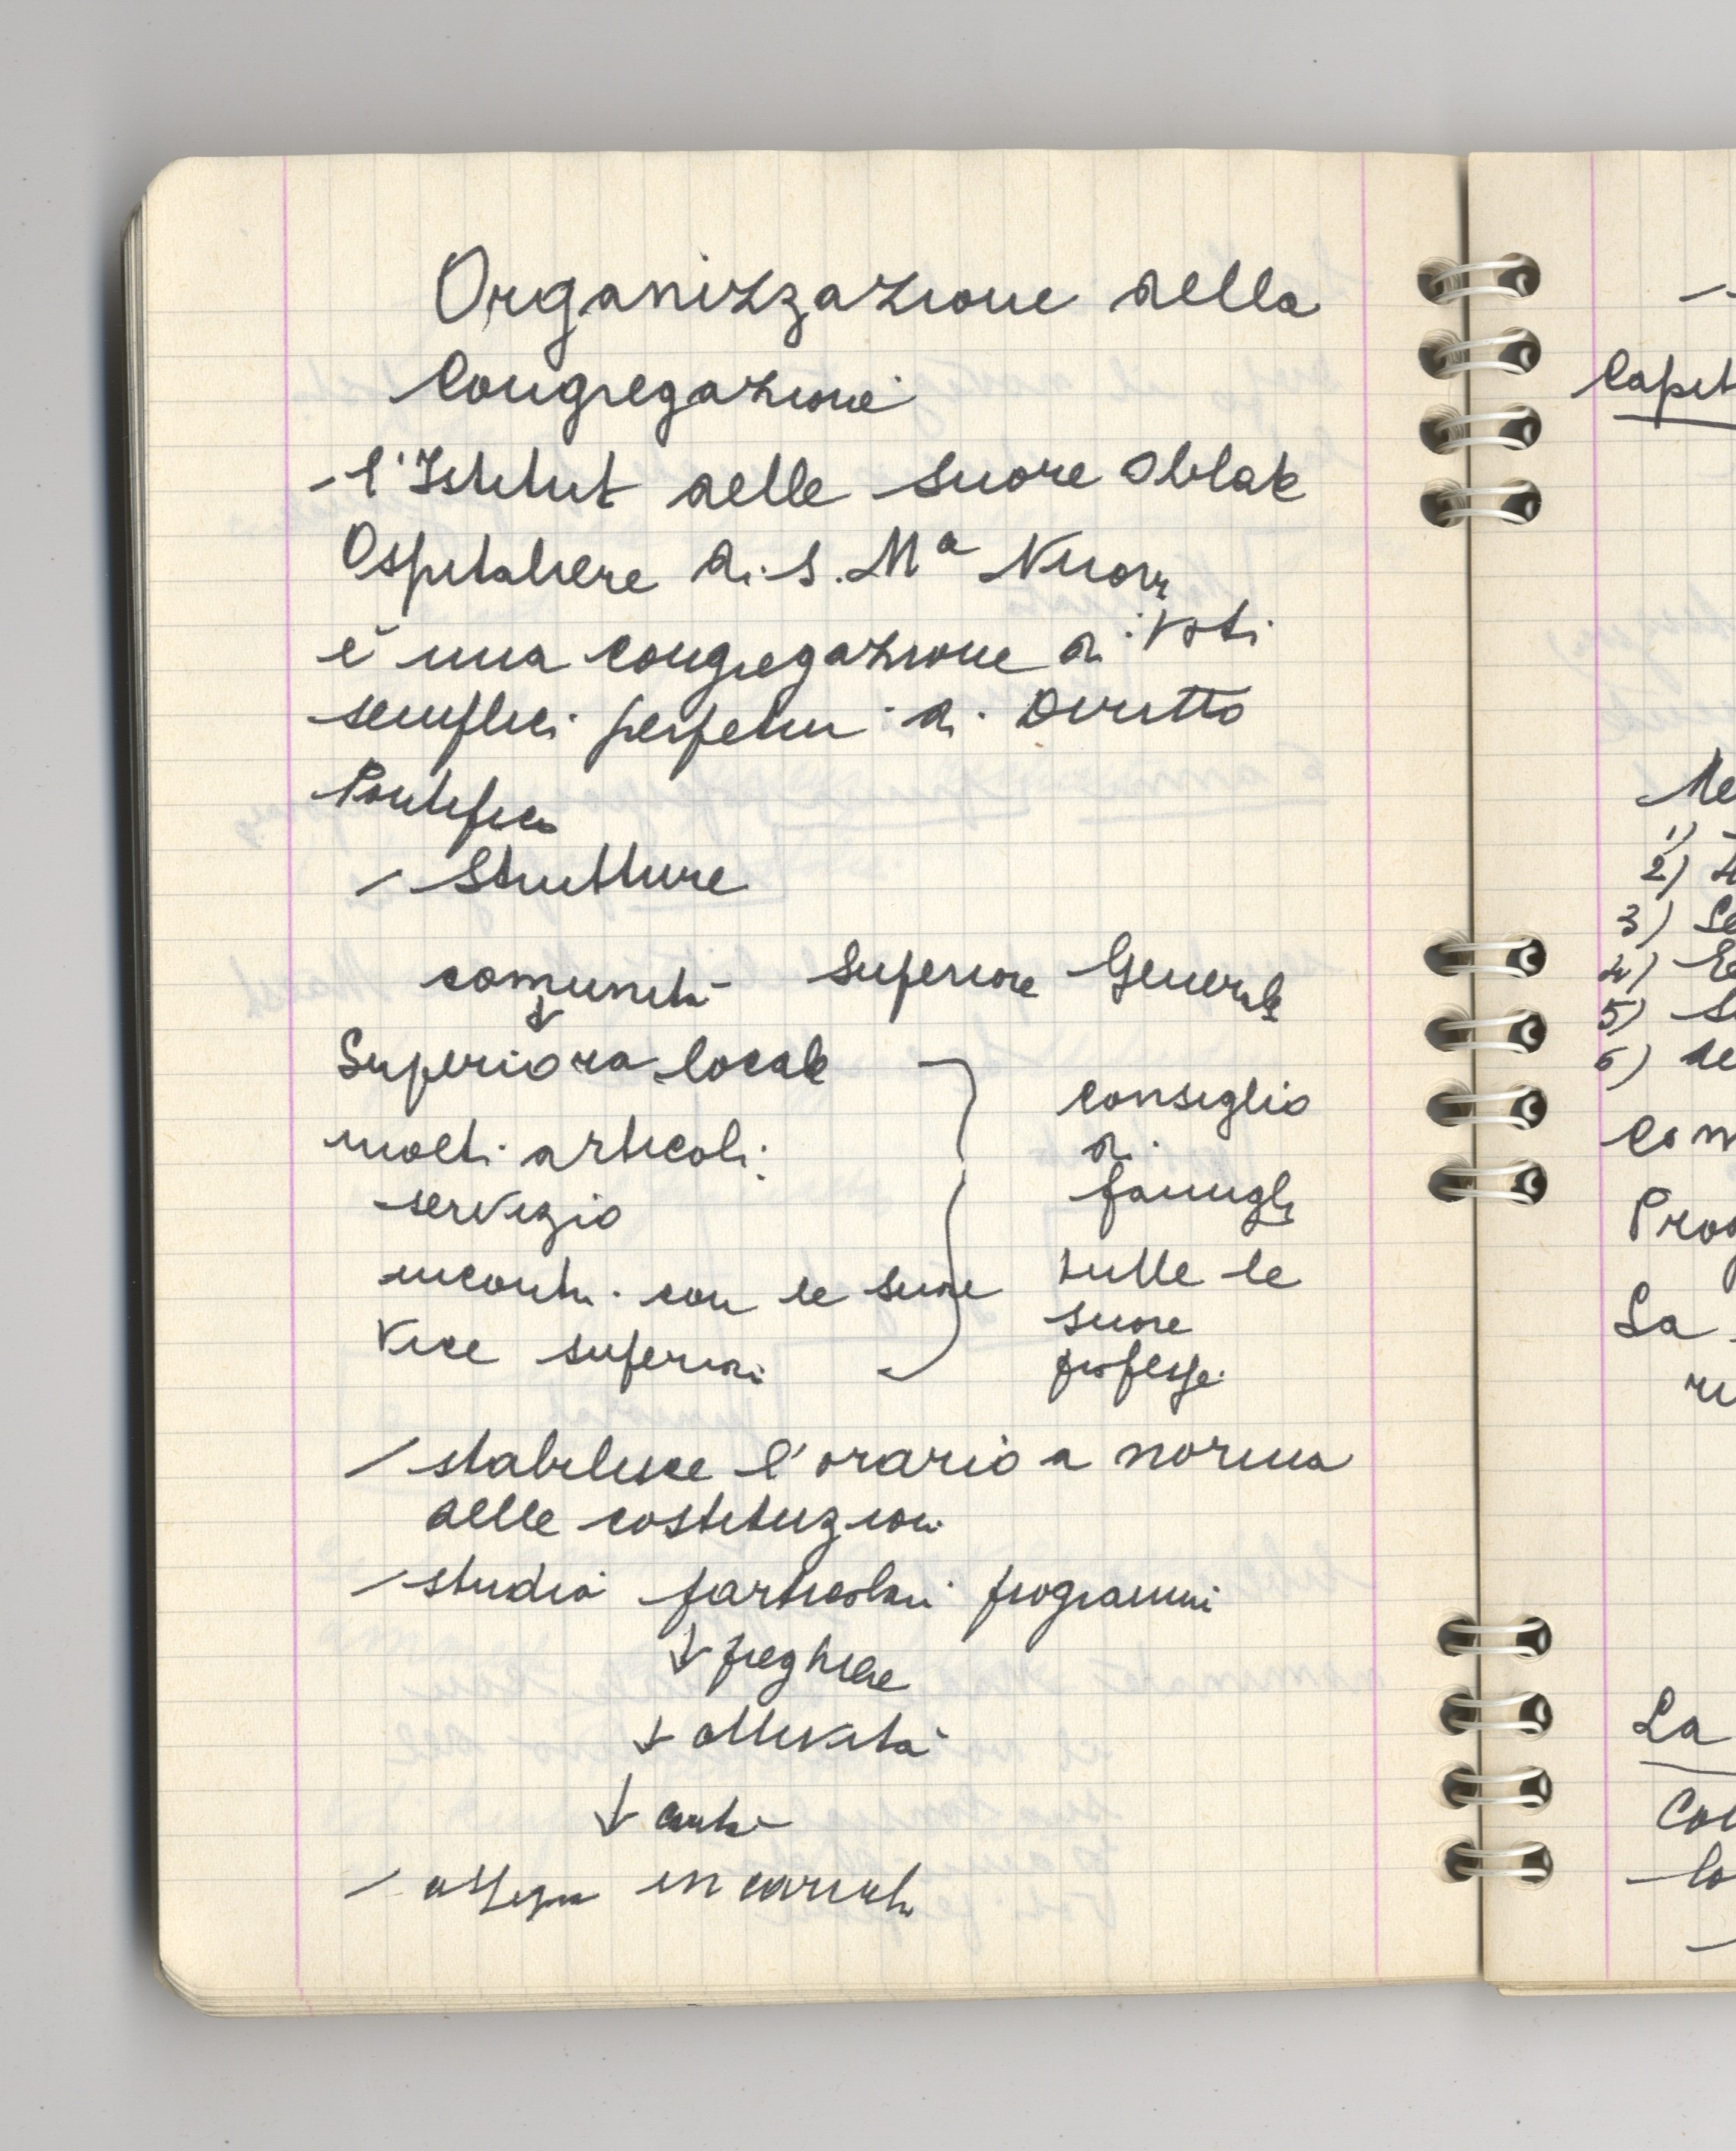 Organizzazione della
Congregazione
- l'Istitut delle Suore Oblate
Ospitaliere di S. Mª Nuova
è una congregazione di voti
semplici perpetui di Diritto
Pontificio
- Strutture
comunità Superiore Generale
↓
Superiora locale
molti articoli:
servizio
incontri con le suore
Vice superiori
consiglio
di
famiglia
tutte le
suore
professe
- stabilisce l'orario a norma
delle costituzioni
- studia particolari programmi
↓ preghiere
↓ attività
↓
- assegna incarichi
Capit
1)
2)
3) Se
4)
5)
6) de
Com
Prog
La
La
Con